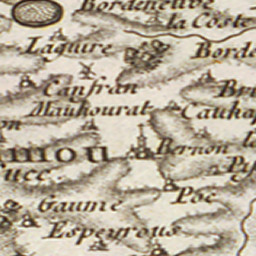 Bordeneuve
la Coste
Laguire
Borde
Canfran
Bri
Mauhourat
Cauhap
on
mou
Bernon
la
Pey
ucc
Gaume
Poc
Espeyrous